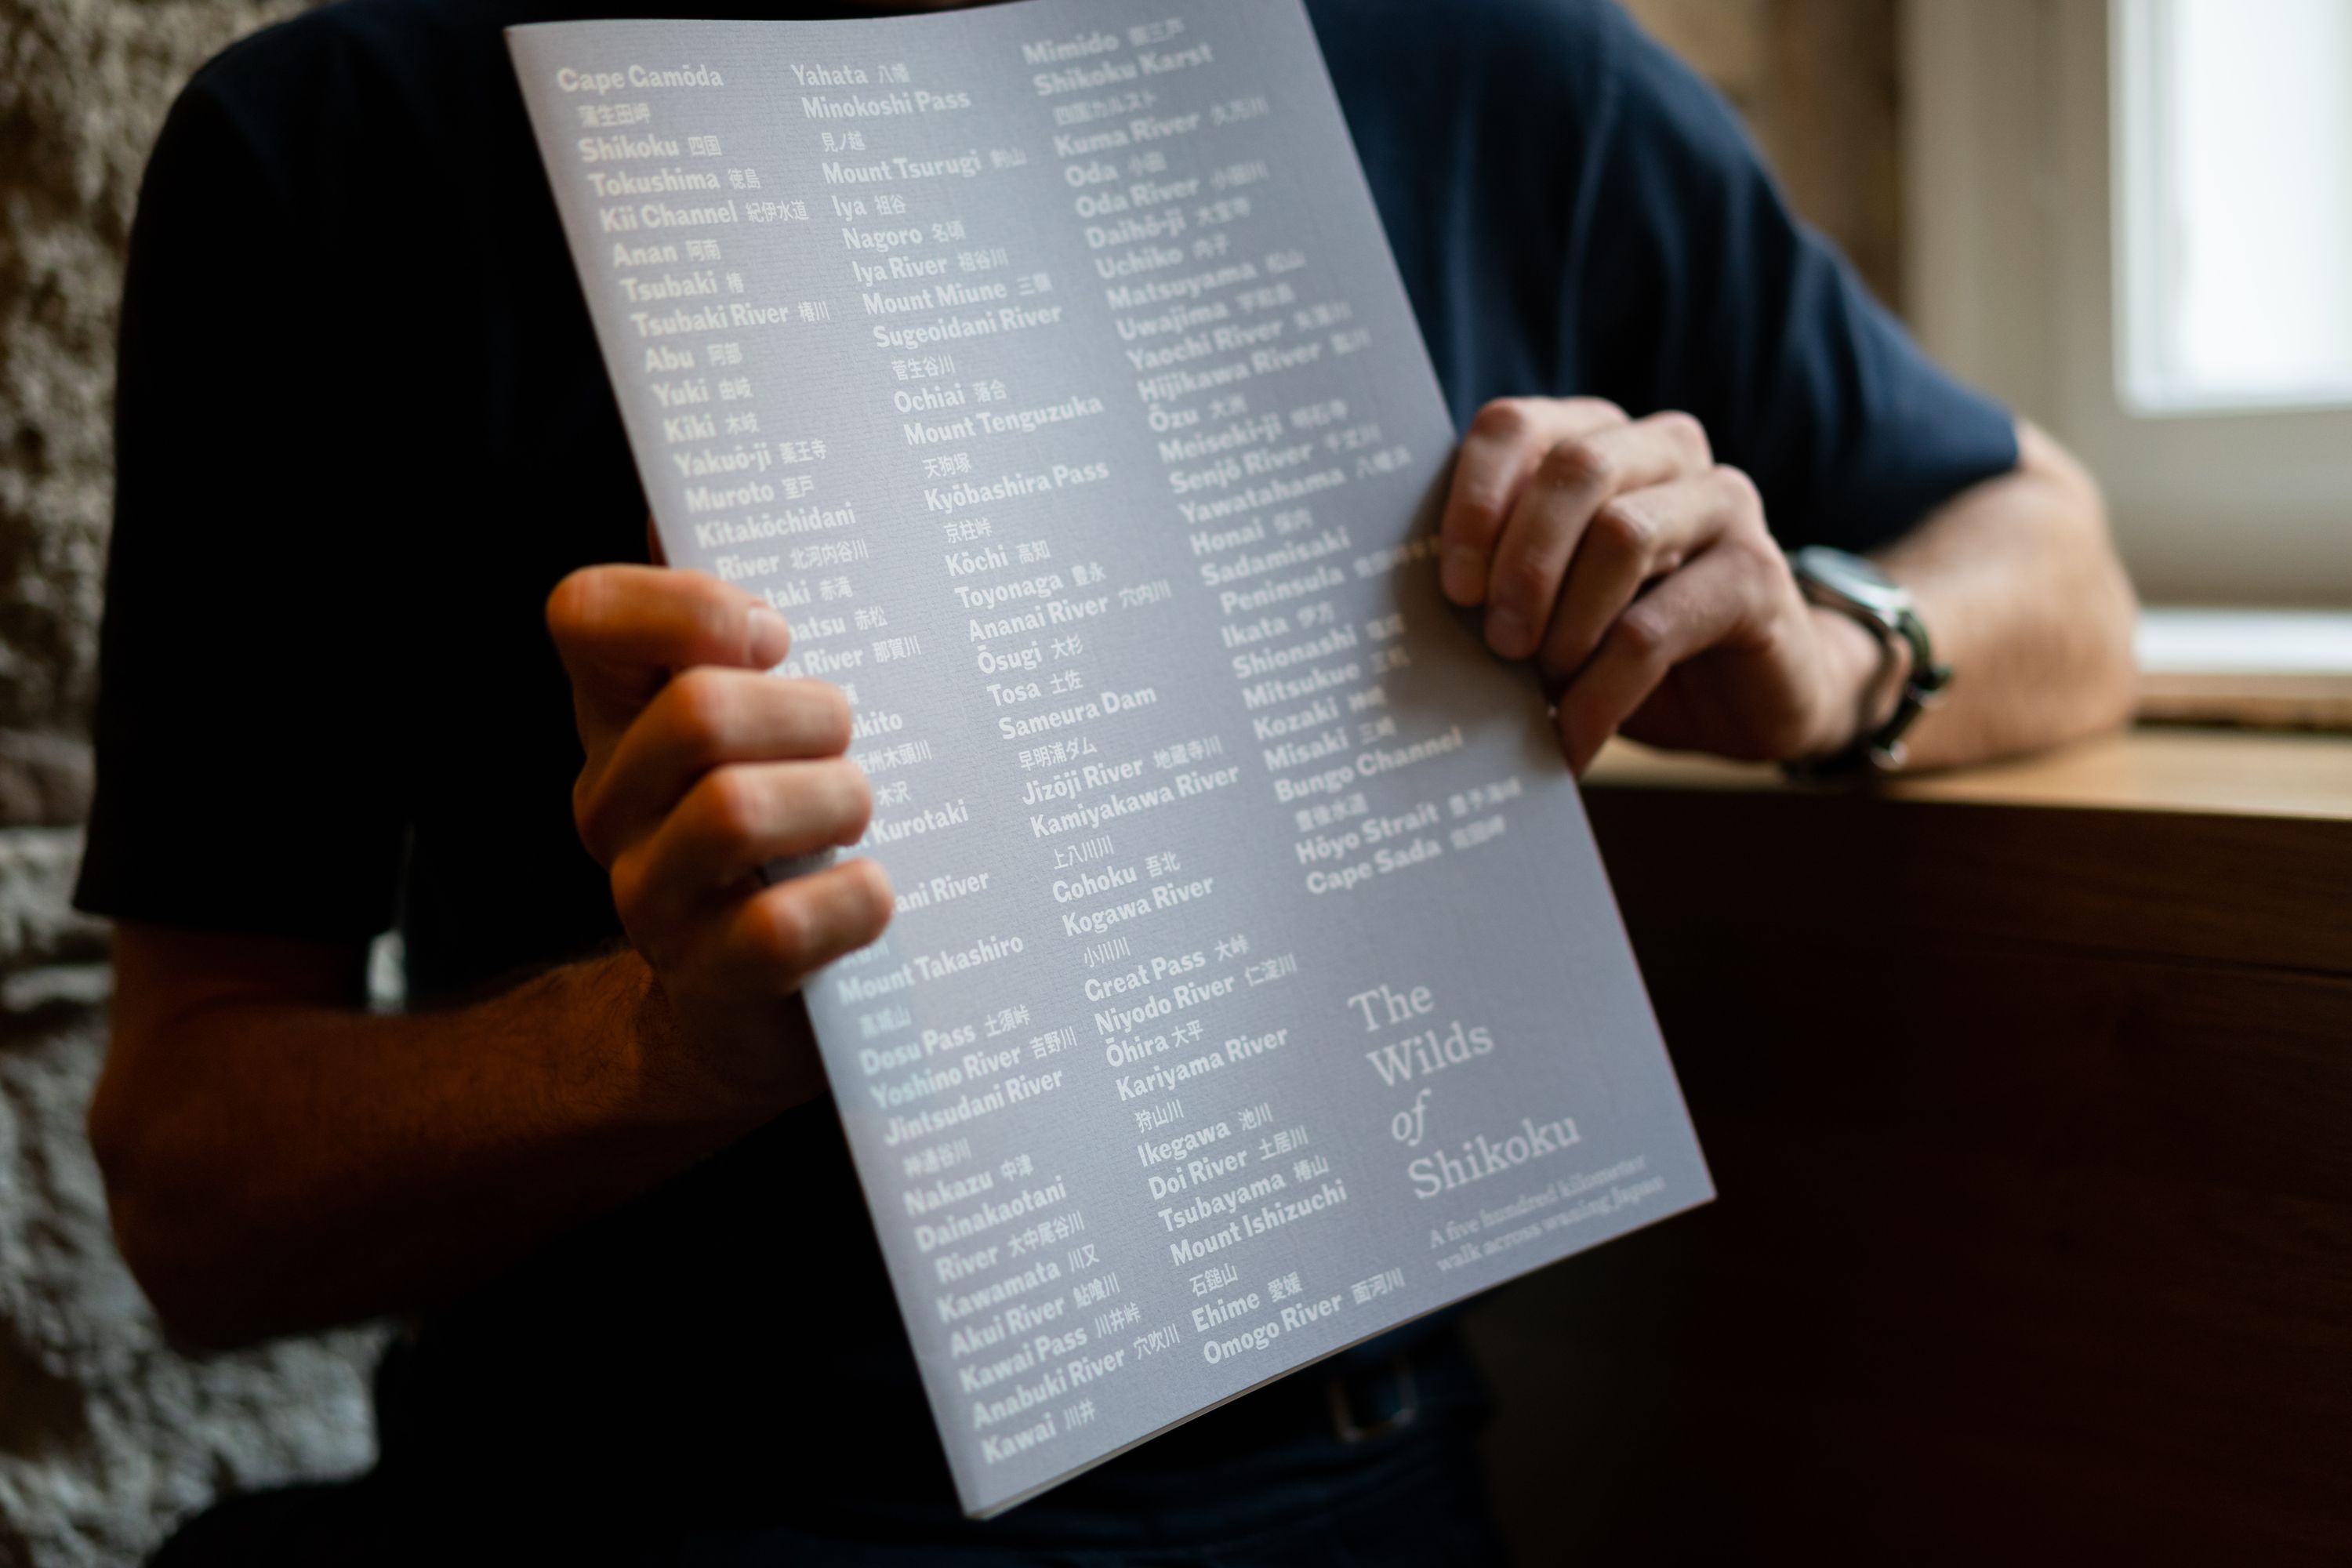 Cape Gamōda
蒲生田岬
Shikoku 四国
Tokushima 徳島
Kii Channel 紀伊水道
Anan 阿南
Tsubaki 椿
Tsubaki River 椿川
Abu 阿部
Yuki 由岐
Kiki 木岐
Yakuō-ji 薬王寺
Muroto 室戸
Kitakōchidani
River 北河内谷川
taki 赤滝
atsu 赤松
River 那賀川
kito
州木頭川
木沢
Kurotaki
ani River
Mount Takashiro
高城山
Dosu Pass 土須峠
Yoshino River 吉野川
Jintsudani River
神通谷川
Nakazu 中津
Dainakaotani
River 大中尾谷川
Kawamata 川又
Akui River 鮎喰川
Kawai Pass 川井峠
Anabuki River 穴吹川
Kawai 川井
Yahata 八幡
Minokoshi Pass
見ノ越
Mount Tsurugi 剣山
Iya 祖谷
Nagoro 名頃
Iya River 祖谷川
Mount Miune 三嶺
Sugeoidani River
菅生谷川
Ochiai 落合
Mount Tenguzuka
天狗塚
Kyōbashira Pass
京柱峠
Kōchi 高知
Toyonaga 豊永
Ananai River 穴内川
Ōsugi 大杉
Tosa 土佐
Sameura Dam
早明浦ダム
Jizōji River 地蔵寺川
Kamiyakawa River
上八川川
Gohoku 吾北
Kogawa River
小川川
Great Pass 大峠
Niyodo River 仁淀川
Ōhira 大平
Kariyama River
狩山川
Ikegawa 池川
Doi River 土居川
Tsubayama 椿山
Mount Ishizuchi
石鎚山
Ehime 愛媛
Omogo River 面河川
Mimido
Shikoku Karst
四国カルスト
Kuma River 久万川
Oda 小田
Oda River 小田川
Daihō-ji 大宝寺
Uchiko 内子
Matsuyama 松山
Uwajima 宇和島
Yaochi River
Hijikawa River 肱川
Ōzu 大洲
Meiseki-ji 明石寺
Senjō River 千丈川
Yawatahama 八幡浜
Honai 保内
Sadamisaki
Peninsula
Ikata 伊方
Shionashi 塩成
Mitsukue 三机
Kozaki 神崎
Misaki 三崎
Bungo Channel
豊後水道
Hōyo Strait 豊予海峡
Cape Sada 佐田岬
The
Wilds
of
Shikoku
A five hundred kilometer
walk across waning Japan